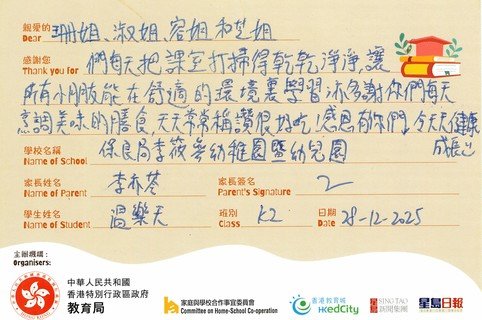 親愛的
Dear 珊姐、淑姐、容姐和芝姐
感謝您
Thank you for 們每天把課室打掃得乾乾淨淨,讓
所有小朋友能在舒適的環境裏學習亦多謝你們每天
烹調美味的膳食,天天常稱讚很好吃!感恩有你們,令天天健康
成長!
學校名稱
Name of School 保良局李筱參幼稚園暨幼兒園
家長姓名
Name of Parent 李亦荃
家長簽名
Parent's Signature
學生姓名
Name of Student 溫樂天
班別
Class K2
日期
Date 28-12-2025
主辦機構:
Organisers:
中華人民共和國
香港特別行政區政府
教育局
家庭與學校合作事宜委員會
Committee on Home-School Co-operation
香港教育城
HKedCity
星島 SING TAO
新聞集團
星島日報